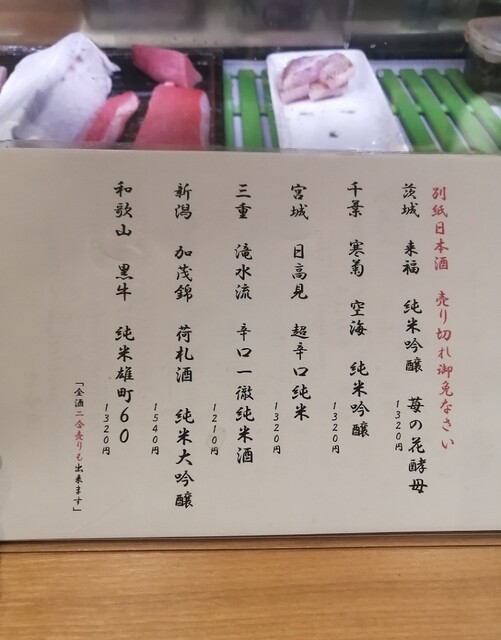 別紙日本酒 売り切れ御免なさい
茨城 来福 純米吟醸 苺の花酵母
1320円
千葉 寒菊 空海 純米吟醸
1320円
宮城 日高見 超辛口純米
1320円
三重 滝水流 辛口一徹純米酒
1210円
新潟 加茂錦 荷札酒 純米大吟醸
1540円
和歌山 黒牛 純米雄町60
1320円
「全酒二合売りも出来ます」